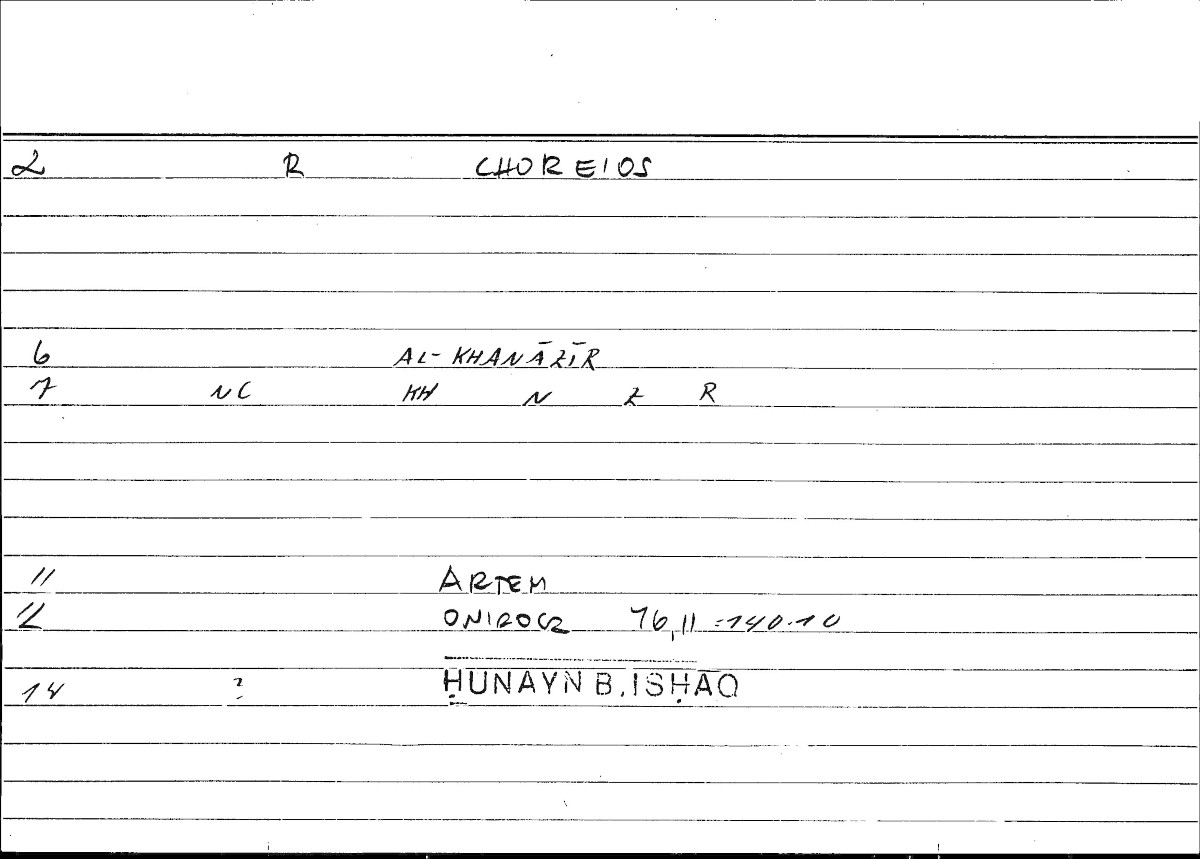 2 R CHOREIOS
6 AL-KHANĀZĪR
7 NC KH N Z R
11 ARTEM
12 ONIROCR 76,11 = 140.10
14 ? ḤUNAYN B. ISḤAQ